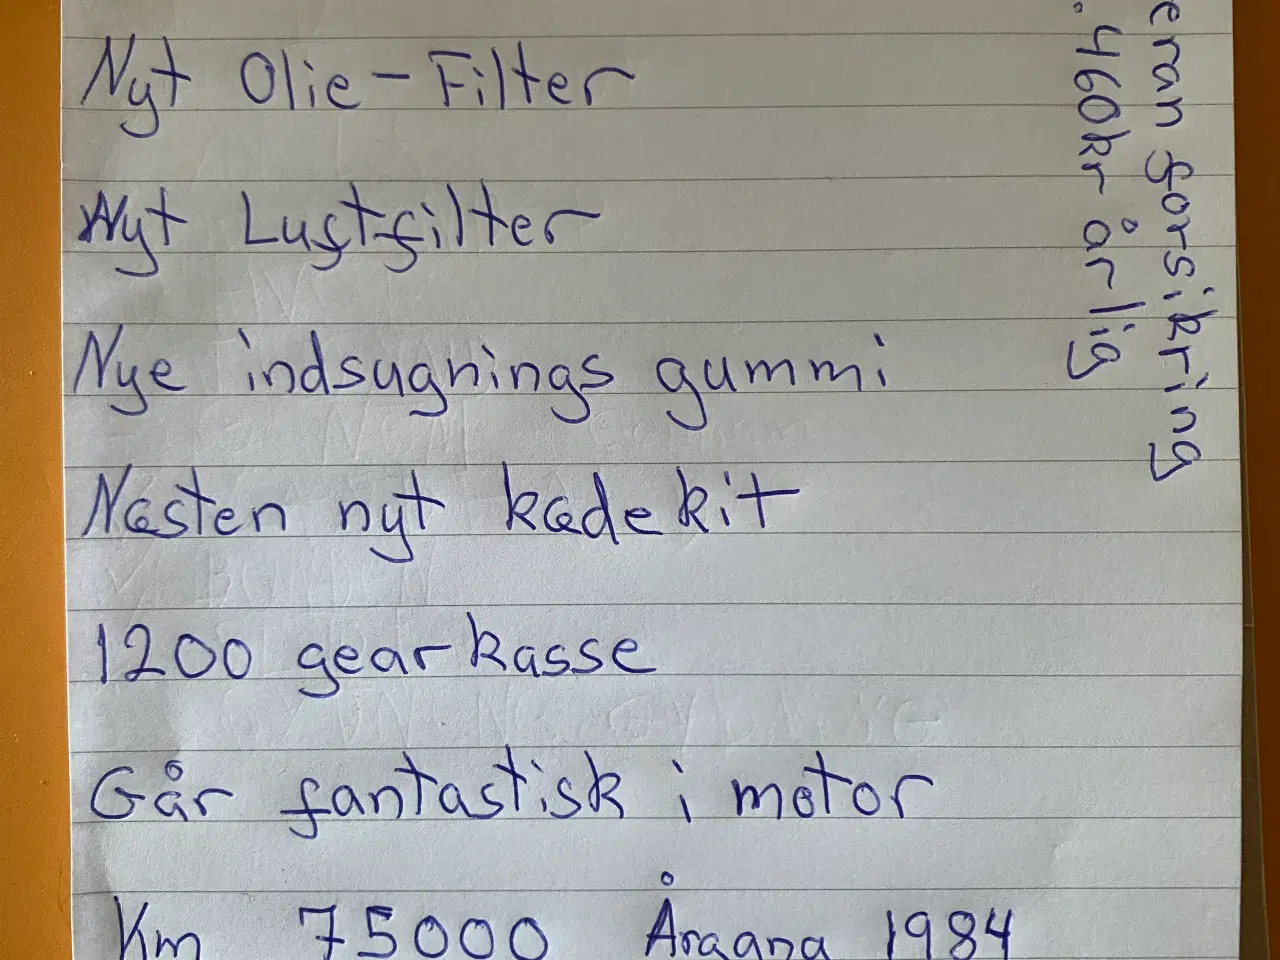 Nyt Olie-Filter
Nyt Luftfilter
Nye indsugnings gummi
Næsten nyt kædekit
1200 gearkasse
Går fantastisk i motor
Km 75000 Årgang 1984
eran forsikring
.460kr årlig